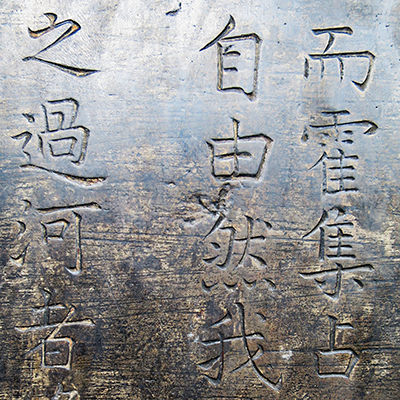 而霍集占
自由然我
之過河者